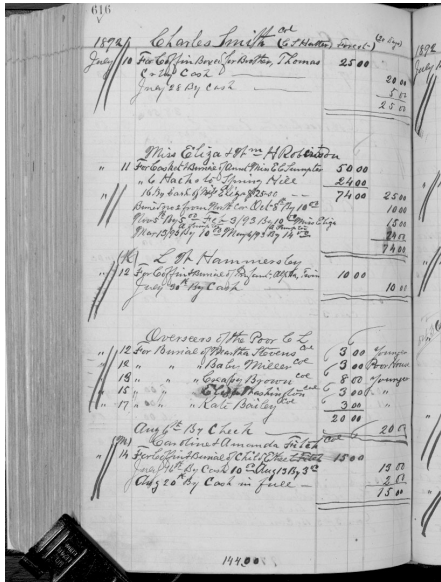 616
V
1892 Charles Smith col (C S Hutter Forest)
July 10 For Coffin Box &c for Brother, Thomas 25 00
Cr By Cash 20 00
July 28 By Cash 5 00
25 00
Miss Eliza & Wm H Robinson
" 11 For Casket & Burial of Aunt Miss E C 50 00
" 6 Hacks to Spring Hill 24 00
16 By Cash of Miss Eliza $25 00 74 00 25 00
Oct 8th By 10 00 10 00
Nov 5th By 5 00 Feb 3/93 By 10 00 Miss Eliza 15 00
Mar 13/93 By 10 00 May 4/93 By 14 00 24 00
74 00
L W Hammersley
" 12 For Coffin & Burial of Infant Twin 10 00
July 30th By Cash 10 00
Overseers of the Poor C L
" 12 For Burial of Martha Stevens Col 3 00 Younger
" 12 " " " Baby Miller col 3 00 Poor House
13 " " " Brown col 8 00 Younger
" 15 " " " Washington col 3 00 " "
" 17 " " " Kate Bailey Col 3 00 "
20 00
Aug 6th By Check 20 00
Caroline & Amanda Col
" 14 For Coffin & Burial of Child 15 00
July 16th By Cash 10 00 Aug 13 By 3 00 13 00
Aug 20th By Cash in full 2 00
15 00
144 00
1892
July